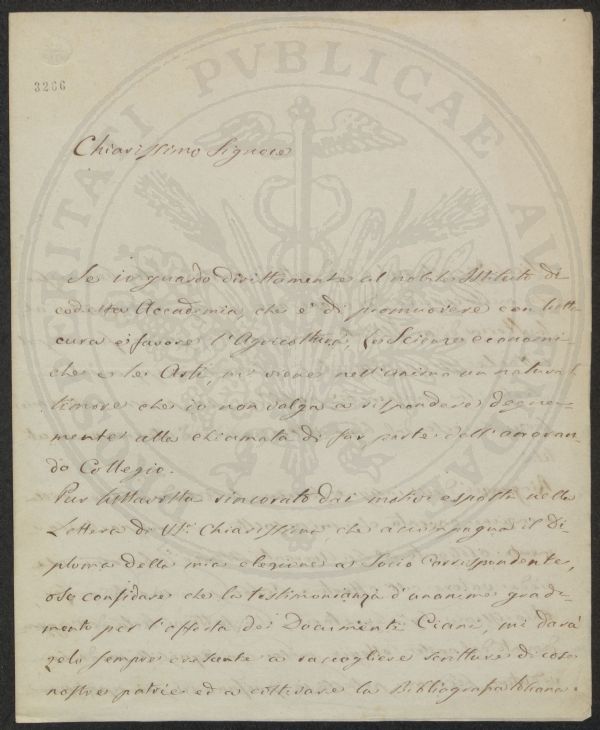 3266
PVBLICAE
Chiarissimo Signore
Se io guardo dirittamente al nobile Istituto di
codesta Accademia che è di promuovere con tutta
cura e favore l'Agricoltura, le Scienze economi-
che e le Arti, mi viene nell'animo un natural
timore che io non valga a rispondere degna-
mente alla chiamata di far parte dell'onoran-
do Collegio.
Pur tuttavolta rincorato dai motivi esposti nella
Lettera di V.S. Chiarissima, che accompagna il Di-
ploma della mia elezione a Socio Corrispondente,
oso confidare che la testimonianza d'unanime gradi-
mento per l'offerta dei Documenti Ciani, mi darà
zelo sempre costante a raccogliere scritture di cose
nostre patrie ed a coltivare la Bibliografia